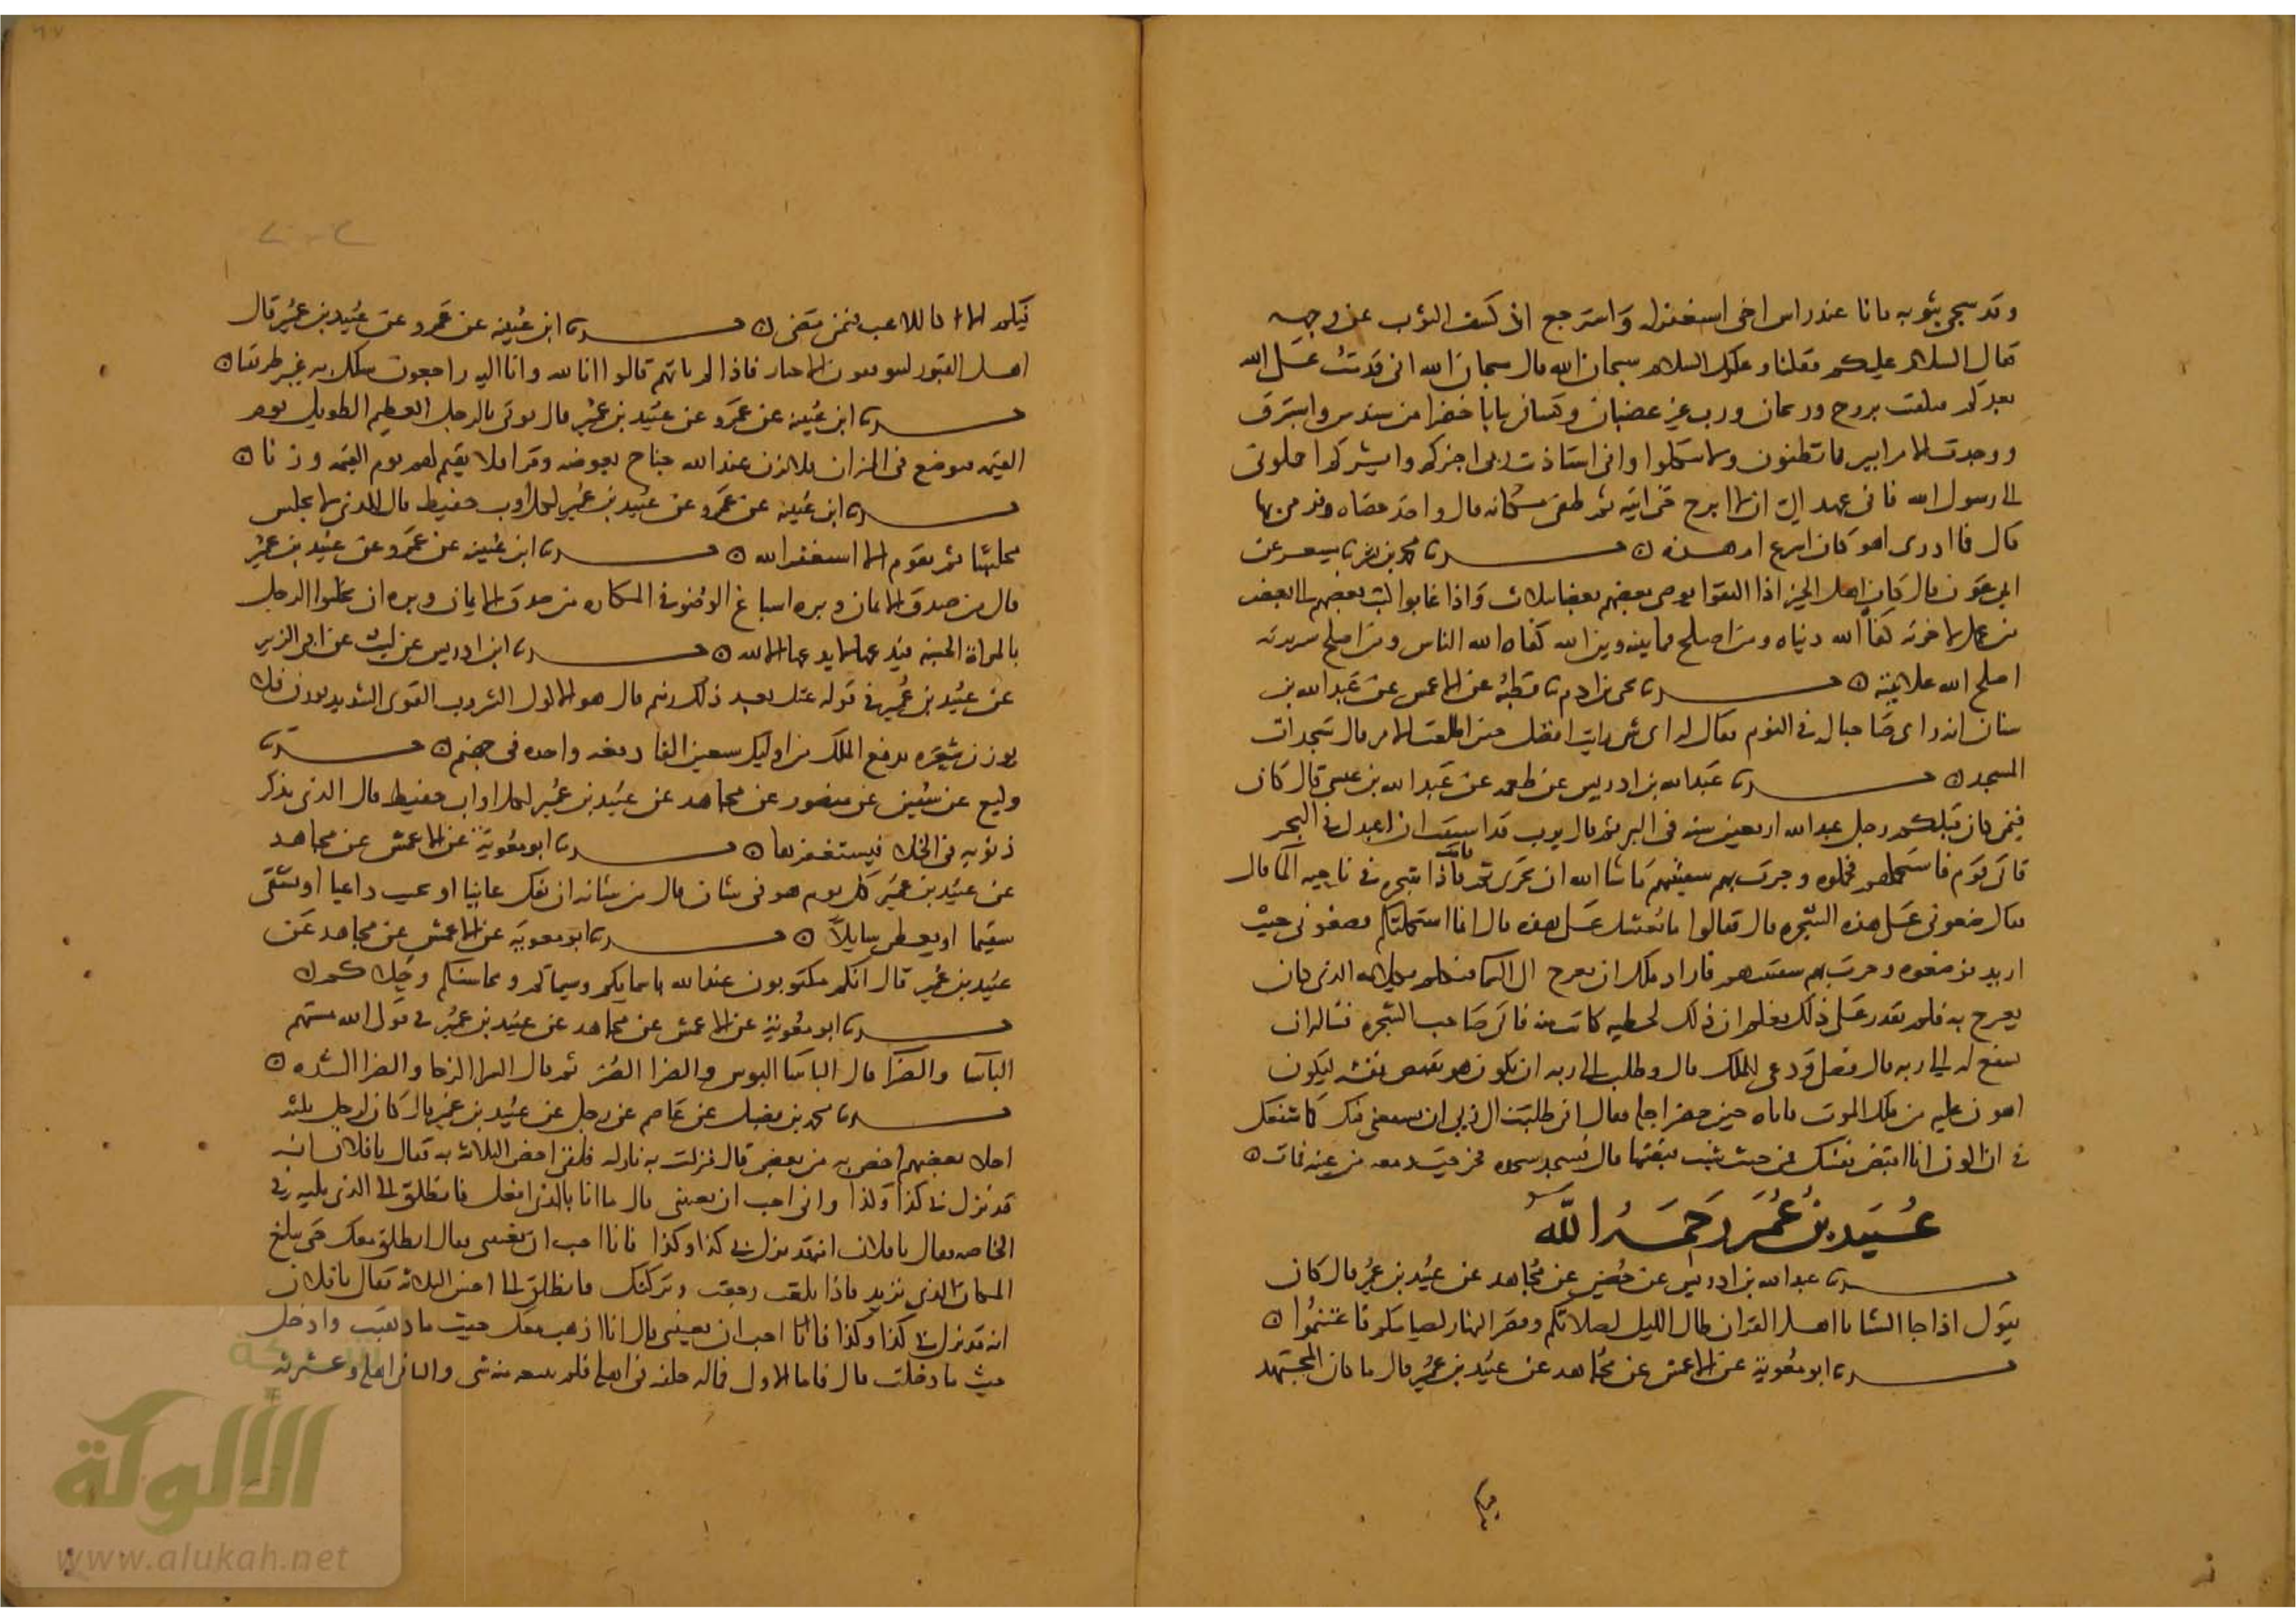 وقد سجي بثوبه فانا عند راس اخي استغفر له واسترجع اذ كشف الثوب عن وجهه
فقال السلام عليكم فقلنا وعليك السلام سبحان الله قال سبحان الله اني قدمت على الله
بعدكم فتلقيت بروح وريحان ورب غير غضبان وكساني ثيابا خضرا من سندس واستبرق
ووجدت الامر ايسر مما تظنون ولا تتكلوا واني استاذنت ربي اخبركم وابشركم احملوني
الى رسول الله فانه عهد الي ان لا ابرح حتى اتيه ثم طفى مكانه قال واخذ حصاه فرمى بها
قال فما ادري اهو كان اسرع ام هذه محمد بن بشر مسعر عن
ابن عون قال كان اهل الخير اذا التقوا يوصي بعضهم بعضا بثلاث واذا غابوا كتب بعضهم الى بعض
من عمل لاخرته كفاه الله دنياه ومن اصلح فيما بينه وبين الله كفاه الله الناس ومن اصلح سريرته
اصلح الله علانيته يحيى بن ادم قطبة عن الاعمش عن عبد الله بن
سنان انه راى صاحبا له في النوم فقال له اي شي رايت افضل حين اطلعت الامر قال سجدات
المسجد عبد الله بن ادريس عن طعمه عن عبد الله بن عيسى قال كان
فيمن كان قبلكم رجل عبد الله اربعين سنه في البر ثم قال يرب قد اشتقت ان اعبدك في البحر
فاتى قوم فاستحملهم فحملوه وجرت بهم سفينتهم ماشا الله ان تجري ثم قامت فاذا شجره في ناحيه الما قال
فقال ضعوني على هذه الشجره قال فقالوا ما يعيشك على هذه قال انما استحملتكم فضعوني حيث
اريد فوضعوه وجرت بهم سفينتهم فاراد ملك ان يعرج الى السما فتكلم بكلامه الذي كان
يعرج به فلم يقدر على ذلك فعلم ان ذلك لخطيه كانت منه فاتى صاحب الشجره فساله ان
يشفع له الى ربه قال فصلى ودعى للملك قال وطلب الى ربه ان يكون هو يقبض نفسه ليكون
اهون عليه من ملك الموت فاتاه حين حضر اجله فقال اني طلبت الى ربي ان يشفعني فيك كما شفعك
في وان اكون انا اقبض نفسك فمن حيث شيت قبضتها قال فسجد سجده فخرجت دمعه من عينه فمات
عبيد بن عمير رحمه الله
عبد الله بن ادريس عن حصين عن مجاهد عن عبيد بن عمير قال كان
يقول اذا جا الشتا يا اهل القران طال الليل لصلاتكم وقصر النهار لصيامكم فاغتنموا
ابو معوية عن الاعمش عن مجاهد عن عبيد بن عمير قال ما كان المجتهد
فيكم الا كاللاعب فيمن مضى ابن عيينه عن عمرو عن عبيد بن عمير قال
اهل القبور ليتوكفون الاخبار فاذا لم ياتهم قالوا انا لله وانا اليه راجعون سلك به غير طريقنا
ابن عيينه عن عمرو عن عبيد بن عمير قال يوتى بالرجل العظيم الطويل يوم
القيمه فيوضع في الميزان فلا يزن عند الله جناح بعوضه وقرا فلا نقيم لهم يوم القيمه وزنا
ابن عيينه عن عمرو عن عبيد بن عمير لكل اواب حفيظ قال الذي لا يجلس
مجلسا ثم يقوم الا استغفر الله ابن عيينه عن عمرو عن عبيد بن عمير
قال من صدق الايمان وبره اسباغ الوضو في المكاره من صدق الايمان وبره ان يخلوا الرجل
بالمراة الحسنه فيدعها لا يدعها الا لله ابن ادريس عن ليث عن ابي الزبير
عن عبيد بن عمير في قوله عتل بعد ذلك زنيم قال هو الاكول الشروب القوي الشديد يوزن فلا
يوزن شعيره يدفع الملك من اوليك سبعين الفا دفعه واحده في جهنم
وكيع عن سفين عن منصور عن مجاهد عن عبيد بن عمير لكل اواب حفيظ قال الذي يذكر
ذنوبه في الخلا فيستغفر لها ابو معوية عن الاعمش عن مجاهد
عن عبيد بن عمير كل يوم هو في شان قال من شانه ان يفك عانيا او يجيب داعيا او يشفي
سقيما او يعطي سايلا ابو معوية عن الاعمش عن مجاهد عن
عبيد بن عمير قال انكم مكتوبون عند الله باسمايكم وسيماكم ومحاسنكم
ابو معوية عن الاعمش عن مجاهد عن عبيد بن عمير في قول الله مستهم
الباسا والضرا قال الباسا البوس والضرا الضر ثم قال السرا الرخا والضرا الشده
محمد بن فضيل عن عاصم عن رجل عن عبيد بن عمير قال كان لرجل ثلثه
اخلا بعضهم اخص به من بعض قال فنزلت به نازله فلقي اخص الثلاثه به فقال يا فلان انه
قد نزل بي كذا وكذا واني احب ان تعينني قال ما انا بالذي افعل فانطلق الى الذي يليه في
الخاصه فقال يا فلان انه قد نزل بي كذا وكذا فانا احب ان تعينني فقال انطلق معك حتى تبلغ
المكان الذي تريد فاذا بلغت رجعت وتركتك فانطلق الى اخس الثلاثه فقال يا فلان
انه قد نزل بي كذا وكذا فانا احب ان تعينني قال انا اذهب معك حيث ما ذهبت وادخل
حيث ما دخلت قال فاما الاول فماله خلفه في اهله فلم يتبعه منه شي والثاني اهله وعشيرته
الألوكة
www.alukah.net